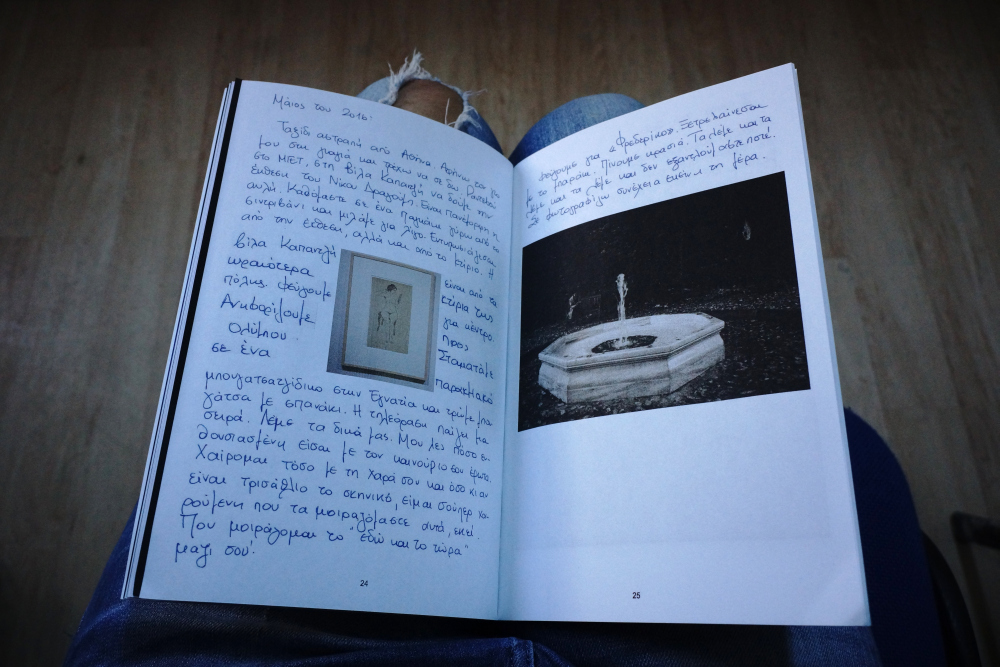 Μάιος του 2016:
Ταξίδι αστραπή από Αθήνα. Αφήνω τον γιο
μου στη γιαγιά και τρέχω να σε δω. Ραντεβού
στο ΜΙΕΤ, στη βίλα Καπαντζή να δούμε την
έκθεση του Νίκου Δραγούμη. Είναι πανέμορφη η
αυλή. Καθόμαστε σε ένα παγκάκι γύρω από το
σιντριβάνι και μιλάμε για λίγο. Εντυπωσιάζεσαι
από την έκθεση, αλλά και από το κτίριο. Η
βίλα Καπαντζή είναι από τα
ωραιότερα κτίρια της
πόλης. Φεύγουμε για κέντρο.
Ανηφορίζουμε προς
Ολύμπου. Σταματάμε
σε ένα παρακμιακό
μπουγατσατζίδικο στην Εγνατία και τρώμε μπου
γάτσα με σπανάκι. Η τηλεόραση παίζει μια
σειρά. Λέμε τα δικά μας. Μου λες πόσο εν
θουσιασμένη είσαι με τον καινούριο σου έρωτα.
Χαίρομαι τόσο με τη χαρά σου και όσο κι αν
είναι τρισάθλιο το σκηνικό, είμαι σούπερ χα
ρούμενη που τα μοιραζόμαστε αυτά, εκεί.
Που μοιράζομαι το "εδώ και το τώρα"
μαζί σου.
24
Φεύγουμε για «Φρεδερίκο». Ξετρελαίνεσαι
με το μπαράκι. Πίνουμε κρασιά. Τα λέμε και τα
λέμε και τα λέμε και δεν εξαντλούμαστε ποτέ.
Σε φωτογραφίζω συνέχεια εκείνη τη μέρα.
25